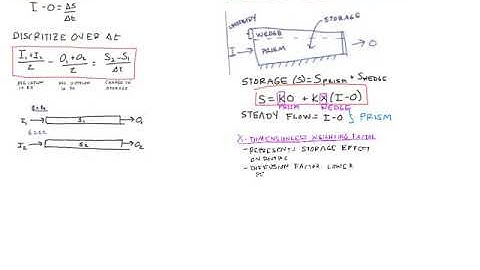 I - O = ΔS
Δt
DISCRITIZE OVER Δt
I₁+I₂ / 2 - O₁+O₂ / 2 = S₂-S₁ / Δt
CHANGE IN STORAGE
I₁ S₁ O₁
I₂ S₂ O₂
STORAGE
WEDGE
I PRISM O
STORAGE (S) = SPRISM + SWEDGE
S = KO + KX(I-O)
PRISM WEDGE
STEADY FLOW = I-O } PRISM
X - DIMENSIONLESS WEIGHTING FACTOR
- REPRESENTS STORAGE EFFECT
- DIFFUSION FACTOR LOWER